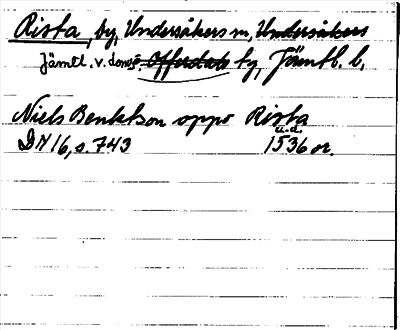 Rista, by, Undersåkers sn, Undersåkers
Jämtl. v. doms. Offerdals tg, Jämtl. l.
Niels Benktson oppo Rista
u.d.
DN 16, s. 743 1536 or.